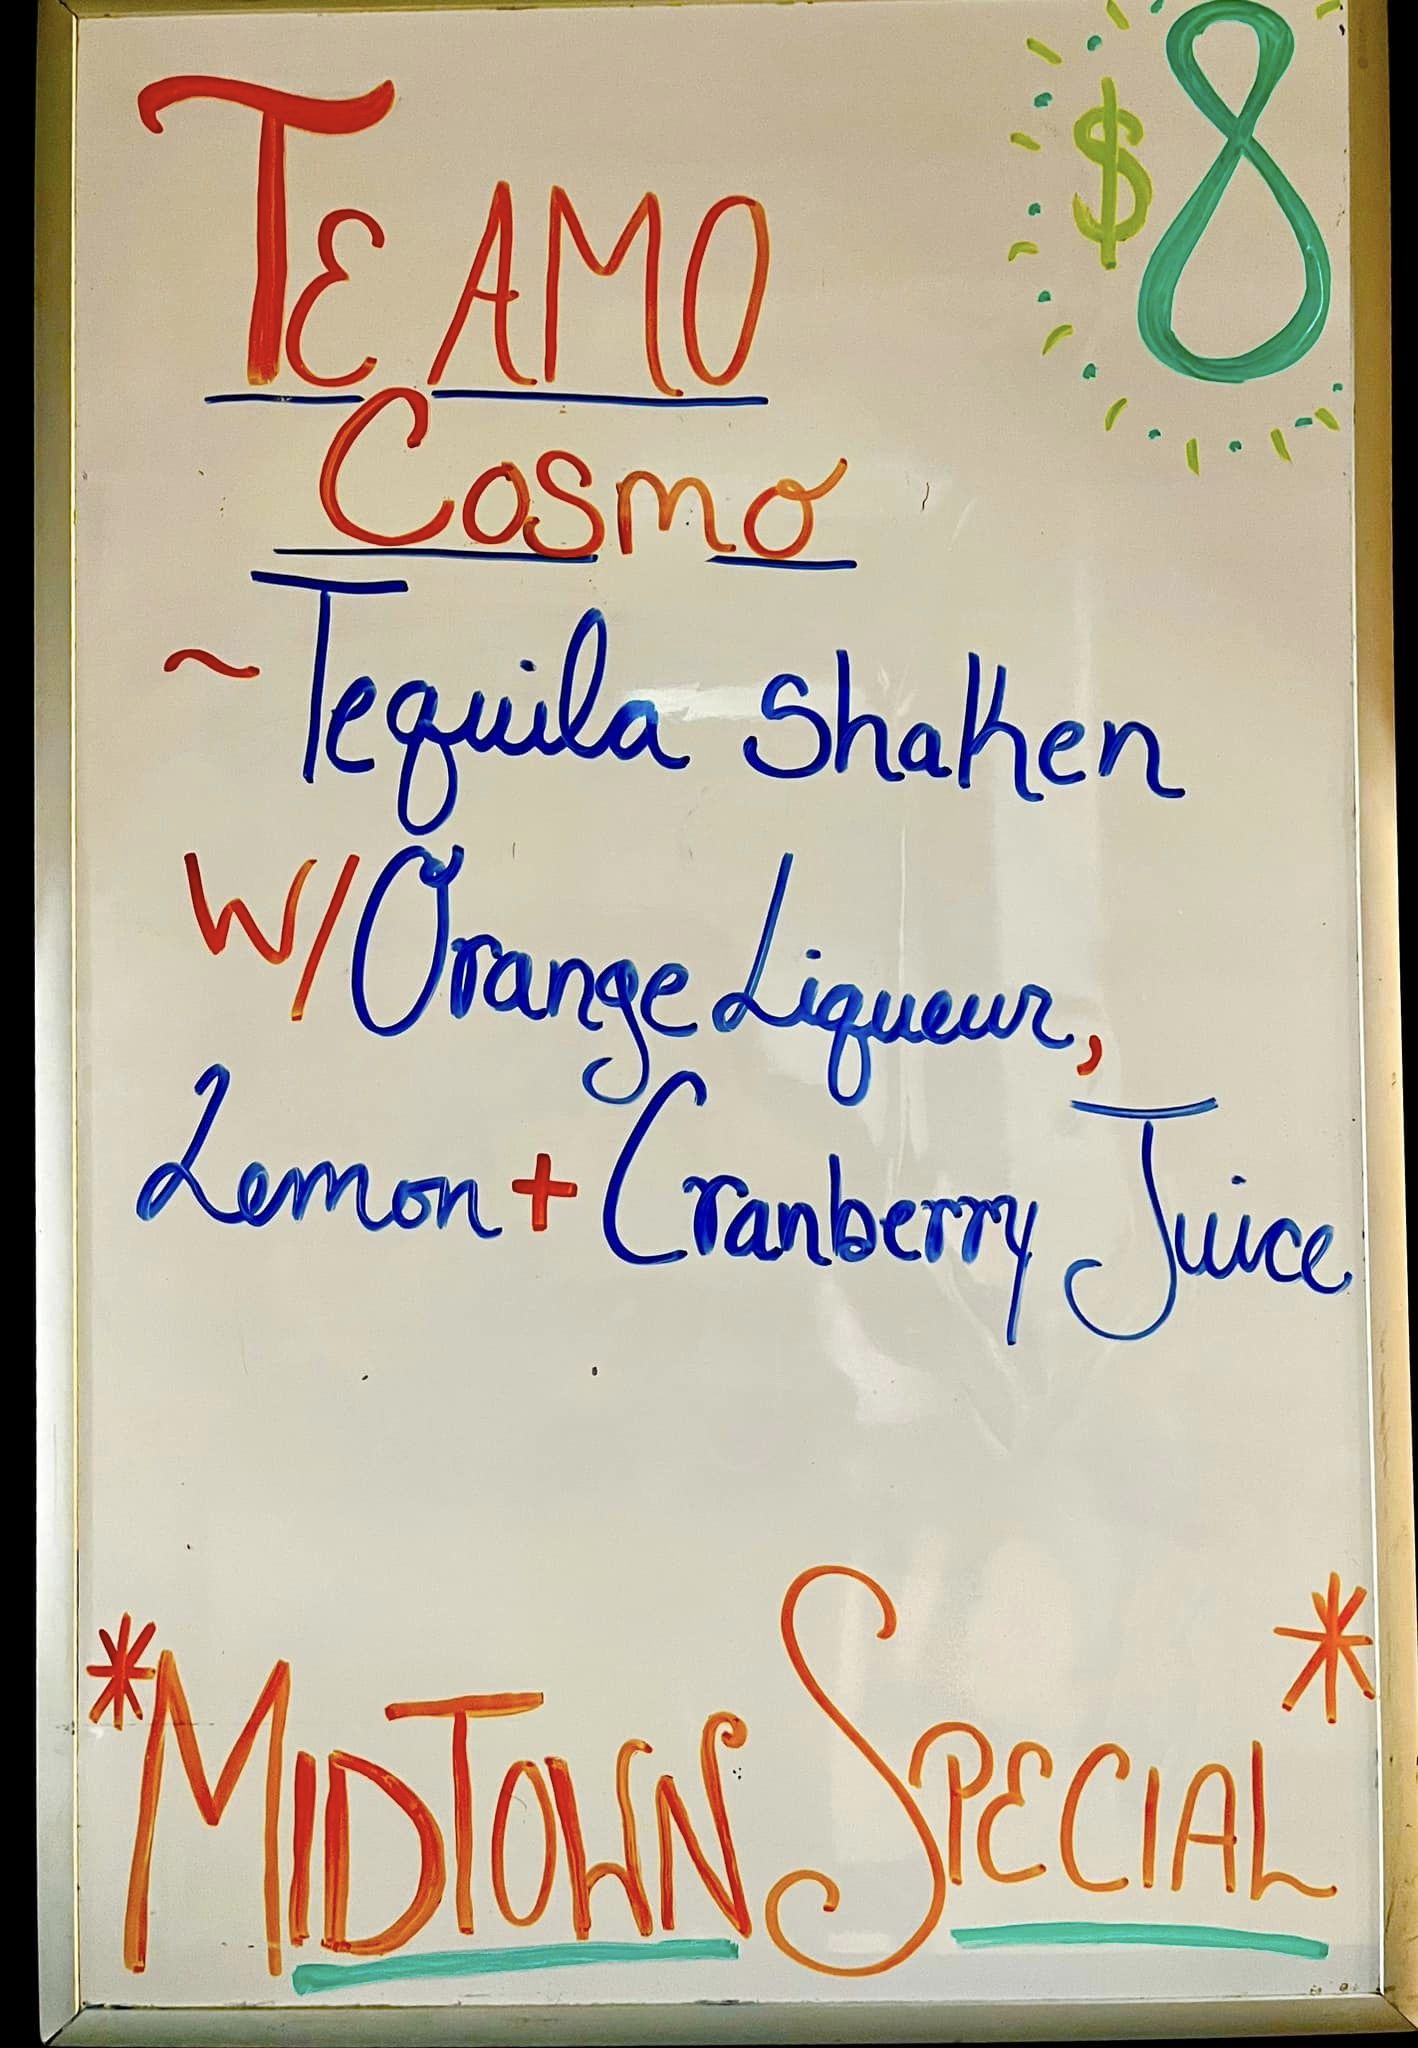 $8
TE AMO
Cosmo
~Tequila Shaken
W/Orange Liqueur,
Lemon + Cranberry Juice
*MIDTOWN SPECIAL*